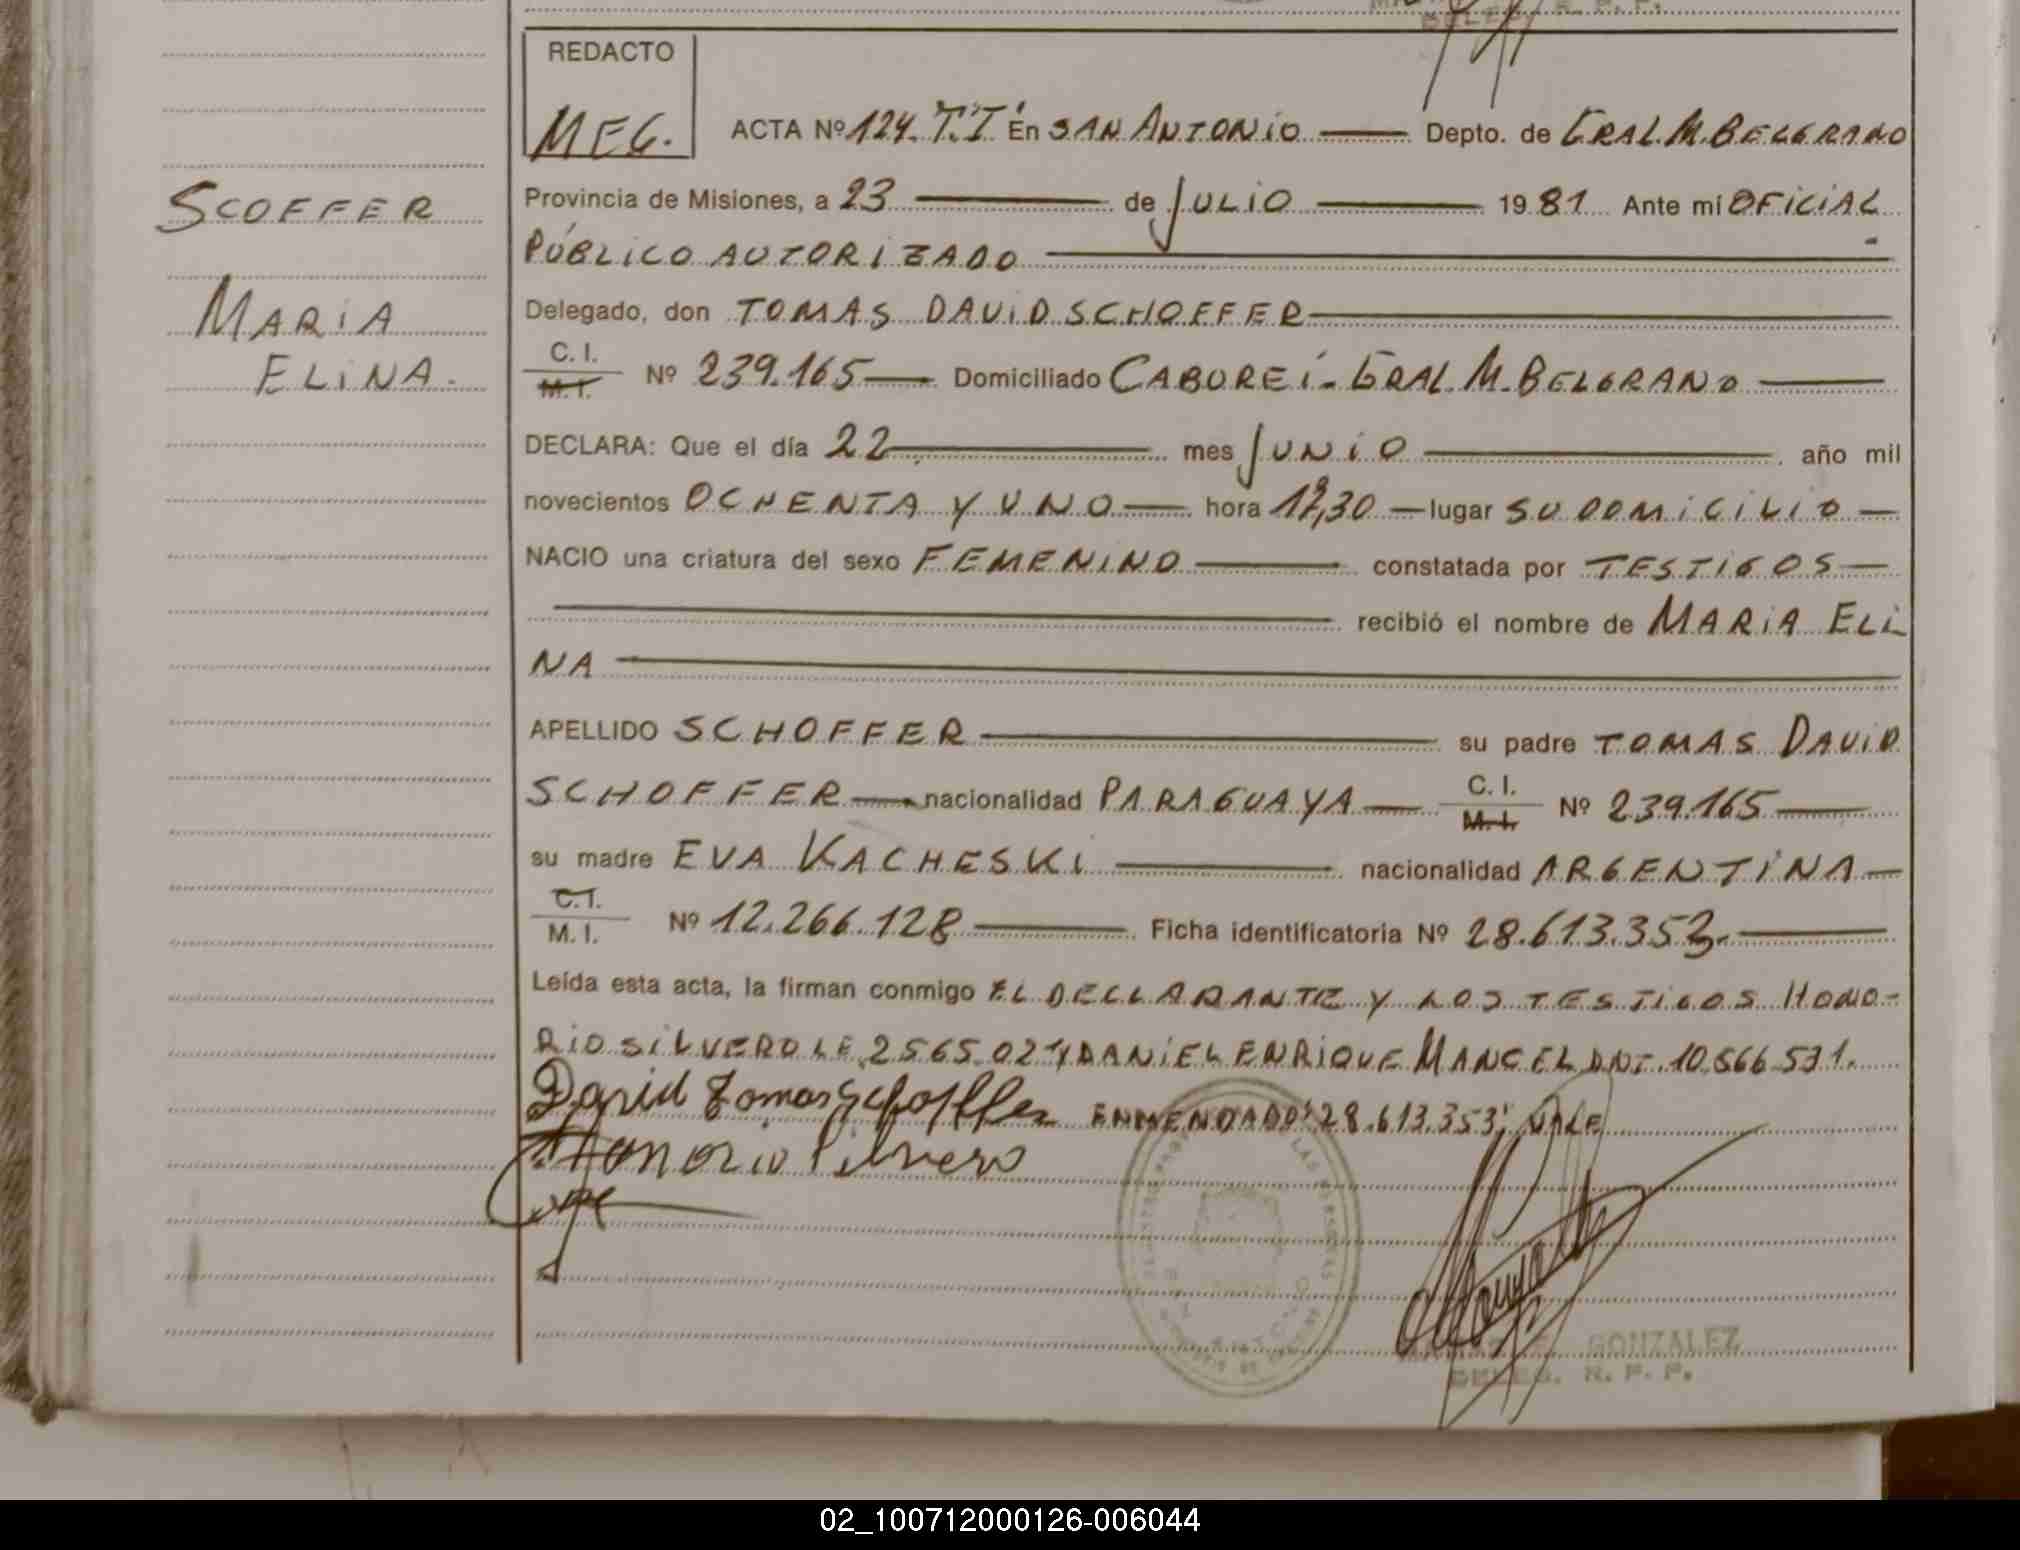 REDACTO
MEG. ACTA Nº 124. T.I En SAN ANTONIO Depto. de GRAL. M. BELGRANO
Provincia de Misiones, a 23 de JULIO 1981 Ante mí OFICIAL
PÚBLICO AUTORIZADO
Delegado, don TOMAS DAVID SCHOFFER
C. I.
M. I. Nº 239.165 Domiciliado CABUREI - GRAL. M. BELGRANO
DECLARA: Que el día 22 mes JUNIO año mil
novecientos OCHENTA Y UNO hora lugar SU DOMICILIO
NACIO una criatura del sexo FEMENINO constatada por TESTIGOS
recibió el nombre de MARIA ELI
NA
APELLIDO SCHOFFER su padre TOMAS DAVID
SCHOFFER nacionalidad PARAGUAYA C. I. M. I. Nº 239.165
su madre EVA KACHESKI nacionalidad ARGENTINA
C. I.
M. I. Nº 12.266.128 Ficha identificatoria Nº 28.613.353.
Leída esta acta, la firman conmigo EL DECLARANTE Y LOS TESTIGOS HONO-
RIO SILVERO LE. 2565.02 Y DANIEL ENRIQUE MANCEL DNI. 10.566.531.
David Tomas Schoffer ENMENDADO: "28.613.353" VALE
Honorio Silvero
GONZALEZ
DELEG. R. P. P.
SCOFFER
MARIA
ELINA.
02_100712000126-006044